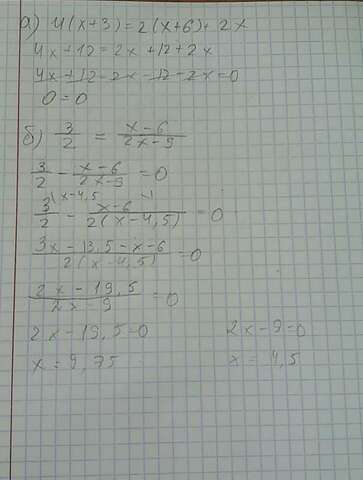 а) 4(x+3)=2(x+6)+2x
4x+12=2x+12+2x
4x+12-2x-12-2x=0
0=0
б) 3/2 = (x-6)/(2x-9)
3/2 - (x-6)/(2x-9) = 0
3/2 |x-4,5 - (x-6)/(2(x-4,5)) |1 = 0
(3x-13,5-x-6)/(2(x-4,5)) = 0
(2x-19,5)/(2x-9) = 0
2x-19,5=0 2x-9=0
x=9,75 x=4,5